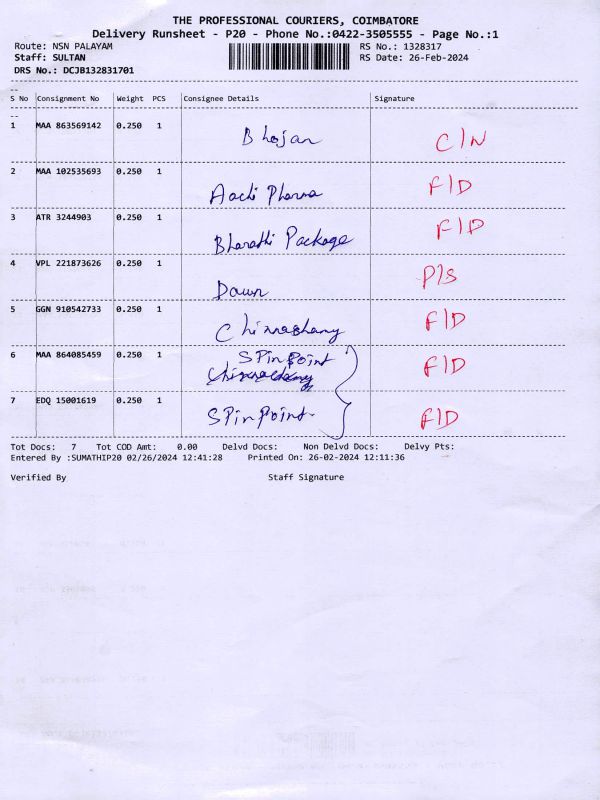 THE PROFESSIONAL COURIERS, COIMBATORE
Delivery Runsheet - P20 - Phone No.:0422-3505555 - Page No.:1
Route: NSN PALAYAM RS No.: 1328317
Staff: SULTAN RS Date: 26-Feb-2024
DRS No.: DCJB132831701
S No Consignment No Weight PCS Consignee Details Signature
1 MAA 863569142 0.250 1 Bhojan C/N
2 MAA 102535693 0.250 1 Aachi Pharma F/D
3 ATR 3244903 0.250 1 Bharathi Package F/D
4 VPL 221873626 0.250 1 Dawn P/S
5 GGN 910542733 0.250 1 F/D
6 MAA 864085459 0.250 1 SPinPoint F/D
7 EDQ 15001619 0.250 1 SPinPoint F/D
Tot Docs: 7 Tot COD Amt: 0.00 Delvd Docs: Non Delvd Docs: Delvy Pts:
Entered By :SUMATHIP20 02/26/2024 12:41:28 Printed On: 26-02-2024 12:11:36
Verified By Staff Signature